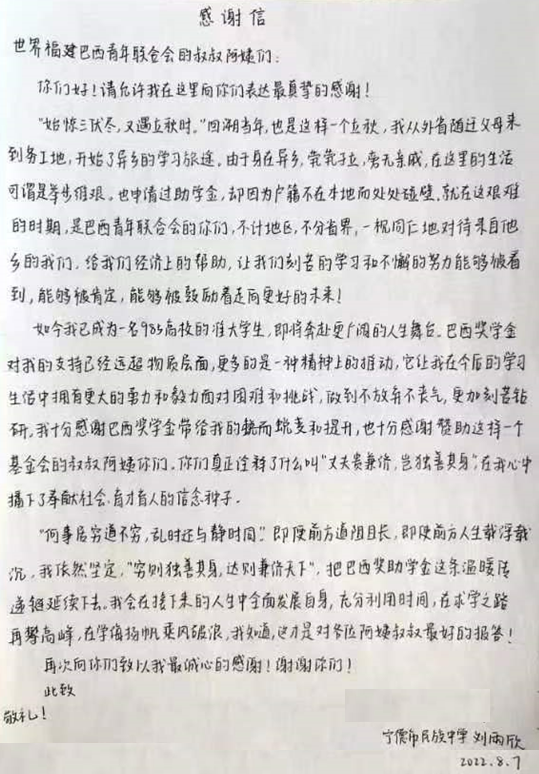 感谢信
世界福建巴西青年联合会的叔叔阿姨们：
你们好！请允许我在这里向你们表达最真挚的感谢！
"始惊三伏尽，又遇立秋时。"回溯当年，也是这样一个立秋，我从外省随迁父母来
到务工地，开始了异乡的学习旅途。由于身在异乡，茕茕孑立，旁无亲戚，在这里的生活
可谓是举步维艰。也申请过助学金，却因为户籍不在本地而处处碰壁，就在这艰难
的时期，是巴西青年联合会的你们，不计地区，不分省界，一视同仁地对待来自他
乡的我们，给我们经济上的帮助，让我们刻苦的学习和不懈的努力能够被看
到，能够被肯定，能够被鼓励着走向更好的未来！
如今我已成为一名985高校的准大学生，即将奔赴更广阔的人生舞台。巴西奖学金
对我的支持已经远超物质层面，更多的是一种精神上的推动，它让我在今后的学习
生活中拥有更大的勇力和毅力面对困难和挑战，做到不放弃不丧气，更加刻苦钻
研。我十分感谢巴西奖学金带给我的蜕变和提升，也十分感谢赞助这样一个
基金会的叔叔阿姨你们。你们真正诠释了什么叫"丈夫贵兼济，岂独善其身"，在我心中
播下了奉献社会、育才育人的信念种子。
"何事居穷道不穷，乱时还与静时同。"即使前方道阻且长，即使前方人生载浮载
沉，我依然坚定，"穷则独善其身，达则兼济天下"，把巴西奖助学金这条温暖传
递链延续下去。我会在接下来的人生中全面发展自身，充分利用时间，在求学之路
再攀高峰，在学海扬帆乘风破浪，我知道，这才是对各位阿姨叔叔最好的报答！
再次向你们致以我最诚心的感谢！谢谢你们！
此致
敬礼！
宁德市民族中学 刘雨欣
2022.8.7